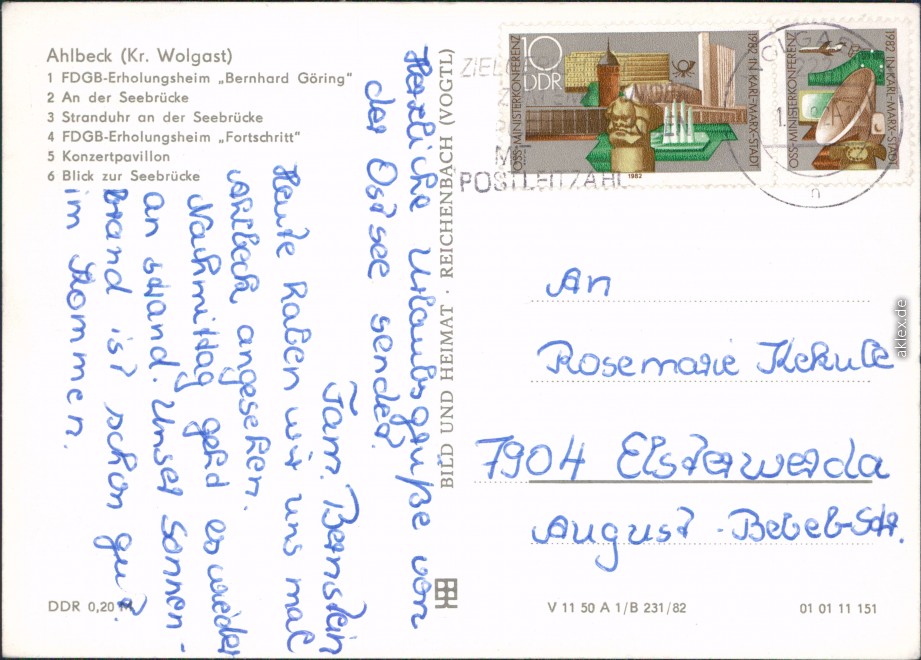 Ahlbeck (Kr. Wolgast)
1 FDGB-Erholungsheim „Bernhard Göring"
2 An der Seebrücke
3 Stranduhr an der Seebrücke
4 FDGB-Erholungsheim „Fortschritt"
5 Konzertpavillon
6 Blick zur Seebrücke
Herzliche Urlaubsgrüße von
der Ostsee sendet
Fam. Bernstein
Heute haben wir uns mal
Ahlbeck angesehen.
Nachmittag geht es wieder
an strand. Unser Sonnen-
brand ist schon gut
im Kommen.
DDR 0,20 M
BILD UND HEIMAT · REICHENBACH (VOGTL)
10
DDR
OSS-MINISTERKONFERENZ
1982 IN KARL-MARX-STADT
1982
OSS-MINISTERKONFERENZ
1982 IN KARL-MARX-STADT
POSTLEITZAHL
An
Rosemarie Kekule
7904 Elsterwerda
August-Bebel-Str.
V 11 50 A 1/B 231/82
01 01 11 151
aklex.de